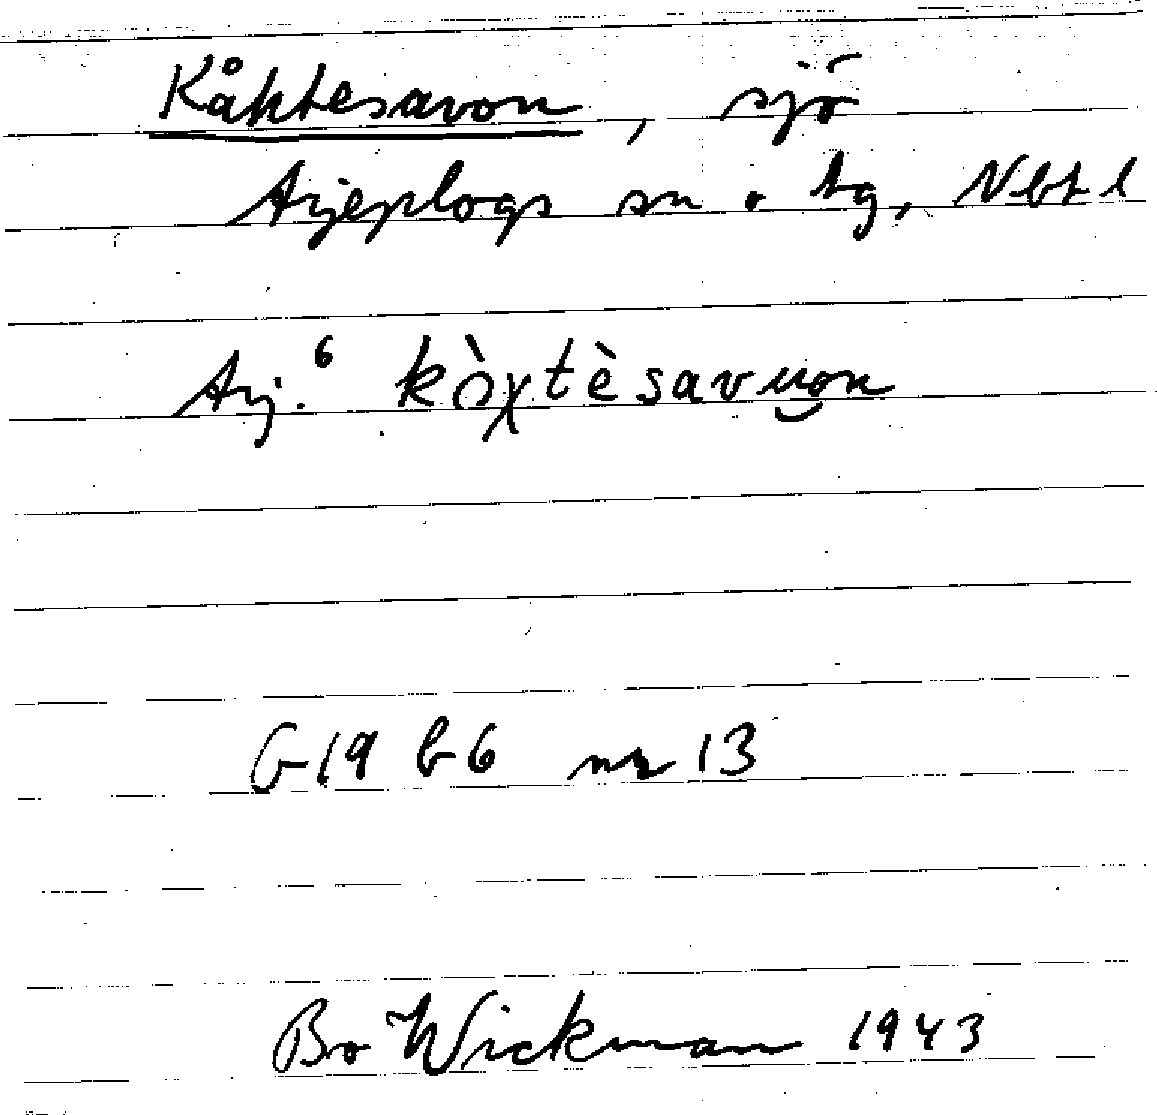 Kåktesavon, sjö
Arjeplogs sn o tg, Nbtl
Arj.⁶ kò̱χtèsavu̯on
G 19 b 6 nr 13
Bo Wickman 1943